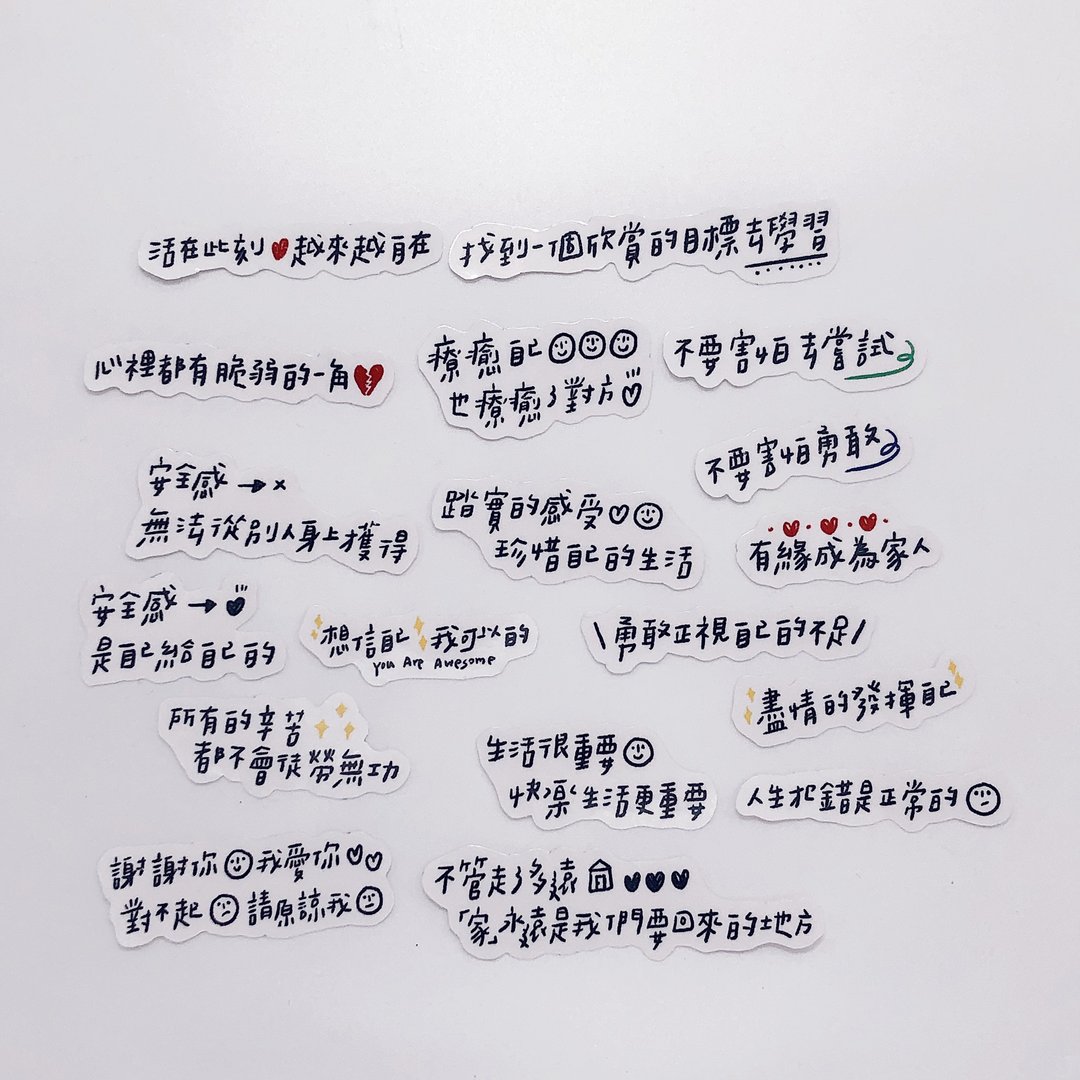 活在此刻❤越來越自在
找到一個欣賞的目標去學習
心裡都有脆弱的一角💔
療癒自己☺☺☺
也療癒了對方♡
不要害怕去嘗試
不要害怕勇敢
安全感→×
無法從別人身上獲得
踏實的感受♡☺
珍惜自己的生活
有緣成為家人
安全感→♥
是自己給自己的
想信自己 我可以的
You Are Awesome
\勇敢正視自己的不足/
盡情的發揮自己
所有的辛苦
都不會徒勞無功
生活很重要☺
快樂生活更重要
人生犯錯是正常的☺
謝謝你☺我愛你♡♡
對不起☺請原諒我☺
不管走了多遠🏠♥♥♥
「家」永遠是我們要回來的地方